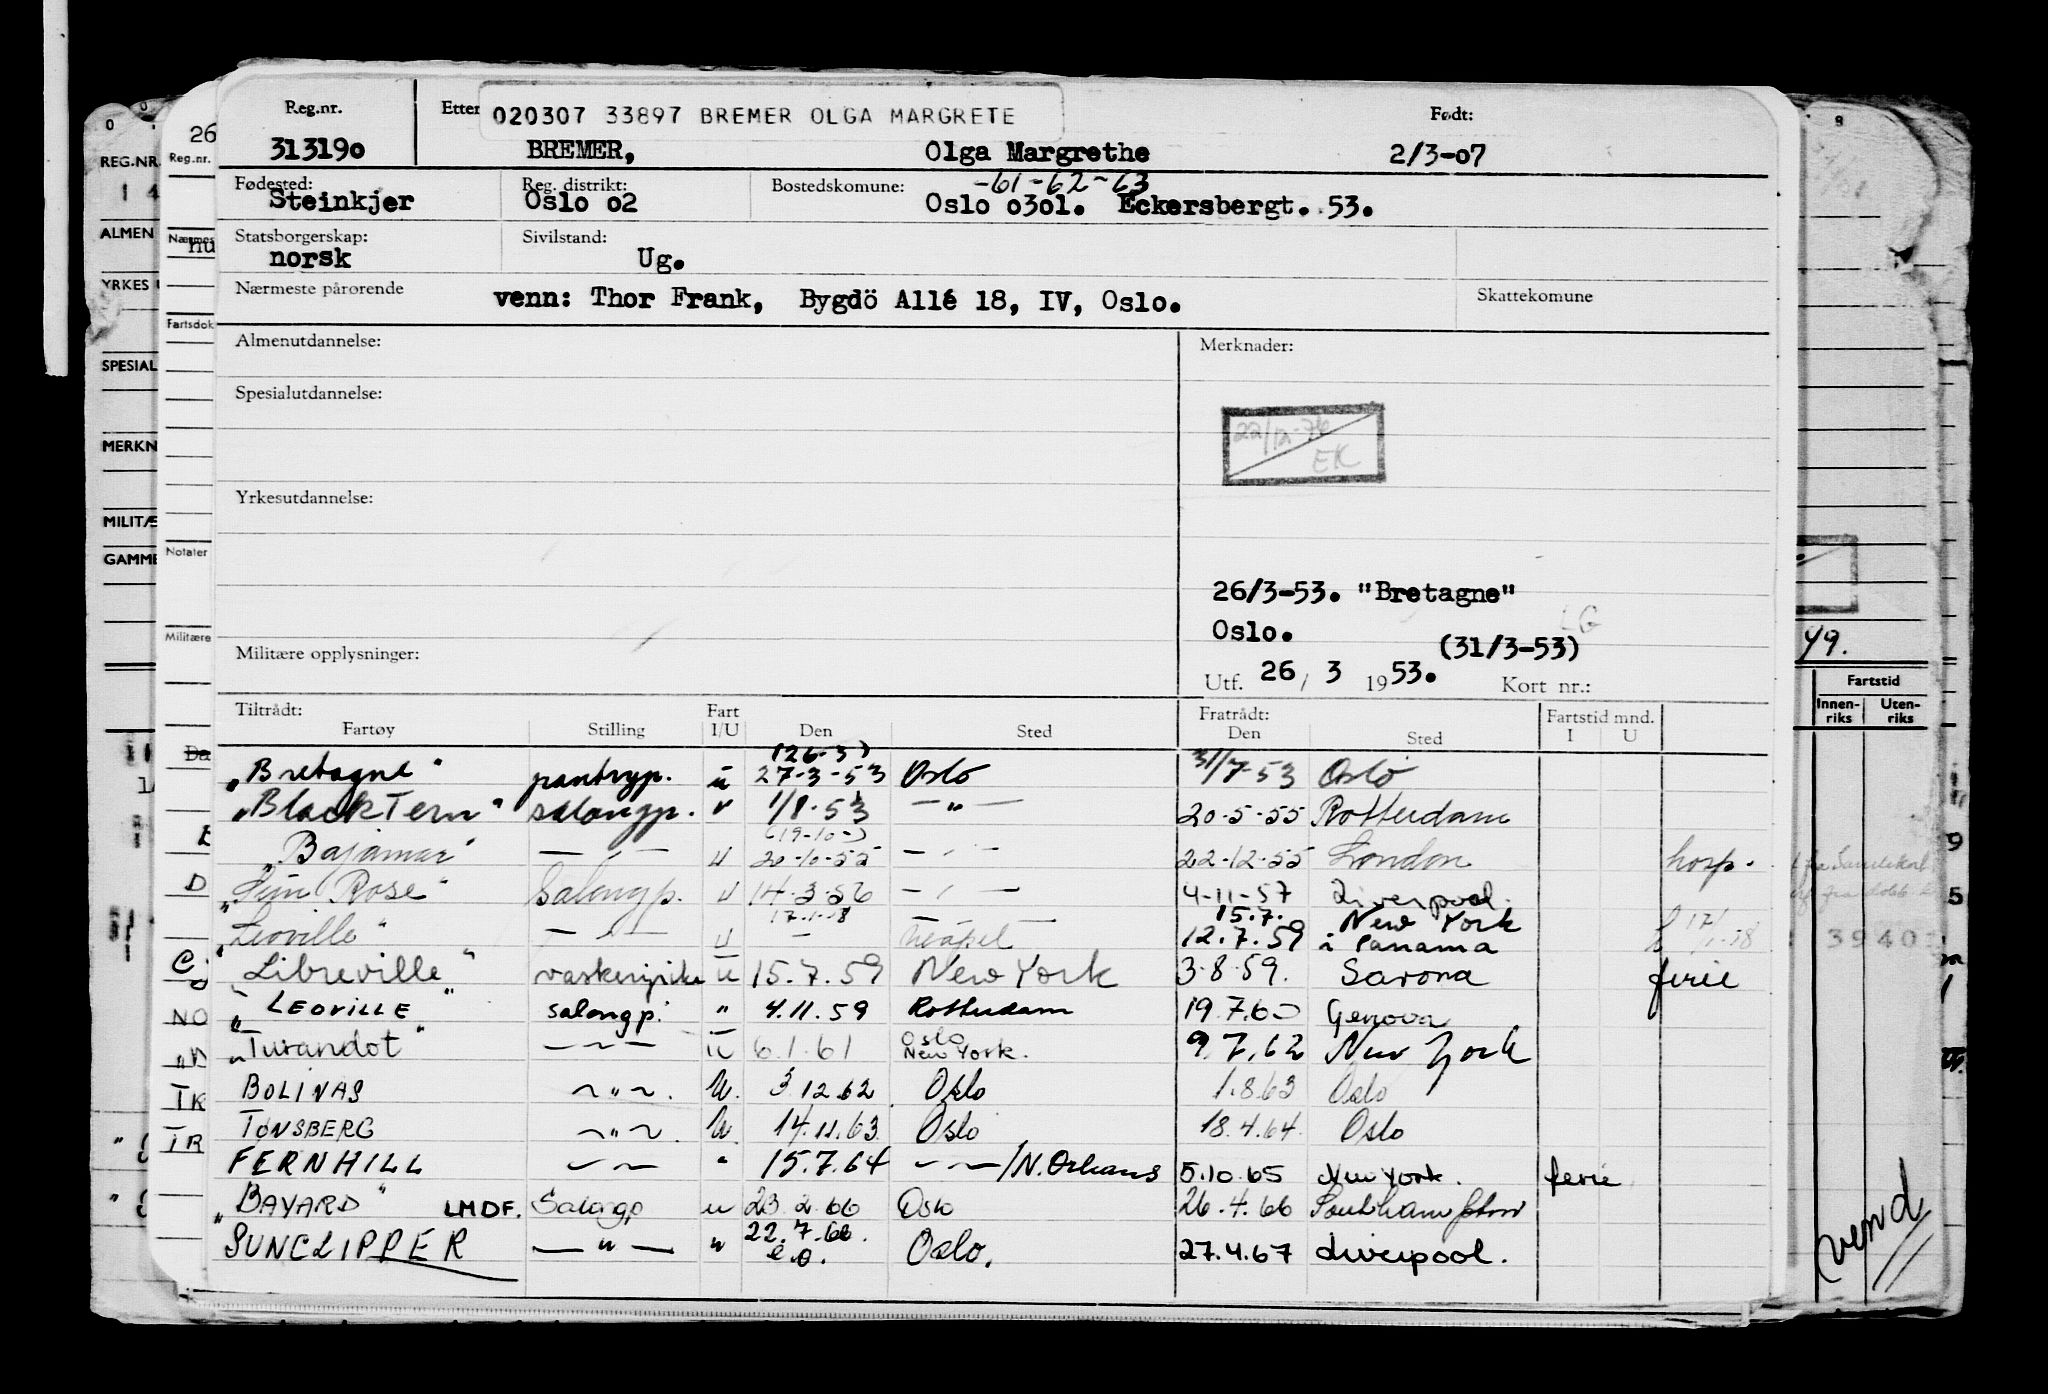 Reg.nr. Etter 020307 33897 BREMER OLGA MARGRETE Født:
313190 BREMER, Olga Margrethe 2/3-07
Fødested: Reg. distrikt: Bostedskomune: -61-62-63
Steinkjer Oslo o2 Oslo o3o1. Eckersbergt. 53.
Statsborgerskap: Sivilstand:
norsk Ug.
Nærmeste pårørende venn: Thor Frank, Bygdö Allé 18, IV, Oslo. Skattekomune
Almenutdannelse: Merknader:
Spesialutdannelse:
22/12-76
EK
Yrkesutdannelse:
26/3-53. "Bretagne"
Oslo.
(31/3-53)
Militære opplysninger:
Utf. 26, 3 1953. Kort nr.:
Tiltrådt: Fart Fratrådt: Fartstid mnd.
Fartøy Stilling I/U Den Sted Den Sted I U
(26-3)
"Bretagne" pantryp. u 27-3-53 Oslo 31/7-53 Oslo
"Black Tern" salongp. " 1/8-53 — " — 20-5-55 Rotterdam
(19-10-)
"Bajamar" — " — u 20-10-55 — " — 22-12-55 London hosp.
"Sun Rose" Salongp. u 14-3-56 — " — 4-11-57 Liverpool.
17-1-58 15.7. New York
"Leoville" — " — u — Neapel 12.7.59 i Panama 17/1-58
"Libreville" vaskeripike u 15.7.59 New York 3-8-59. Savona ferie
"LEOVILLE" salongp. " 4.11.59 Rotterdam 19.7.60 Genova
"Turandot" — " — u 6.1.61 Oslo New York. 9.7.62 New York
BOLINAS — " — . U. 3.12.62 Oslo 1.8.63 Oslo
TØNSBERG — " — . U. 14.11.63 Oslo 18.4.64 Oslo
FERNHILL — " — " 15.7.64 — " — /N.Orleans 5.10.65 New York. ferie
"BAYARD" LMDF. Salongp u 23.2.66 Oslo 26.4.66 Southampton
SUNCLIPPER — " — " 22.7.66. e.o. Oslo. 27.4.67 Liverpool.
REG.NR.
1 4
ALMEN
YRKES
SPESIAL
MERKN
MILITÆ
GAMME
26
Reg.nr.
nu
Fartsdok
Notater
Militære
49.
Fartstid
Innen-riks Uten-riks
3940
vend